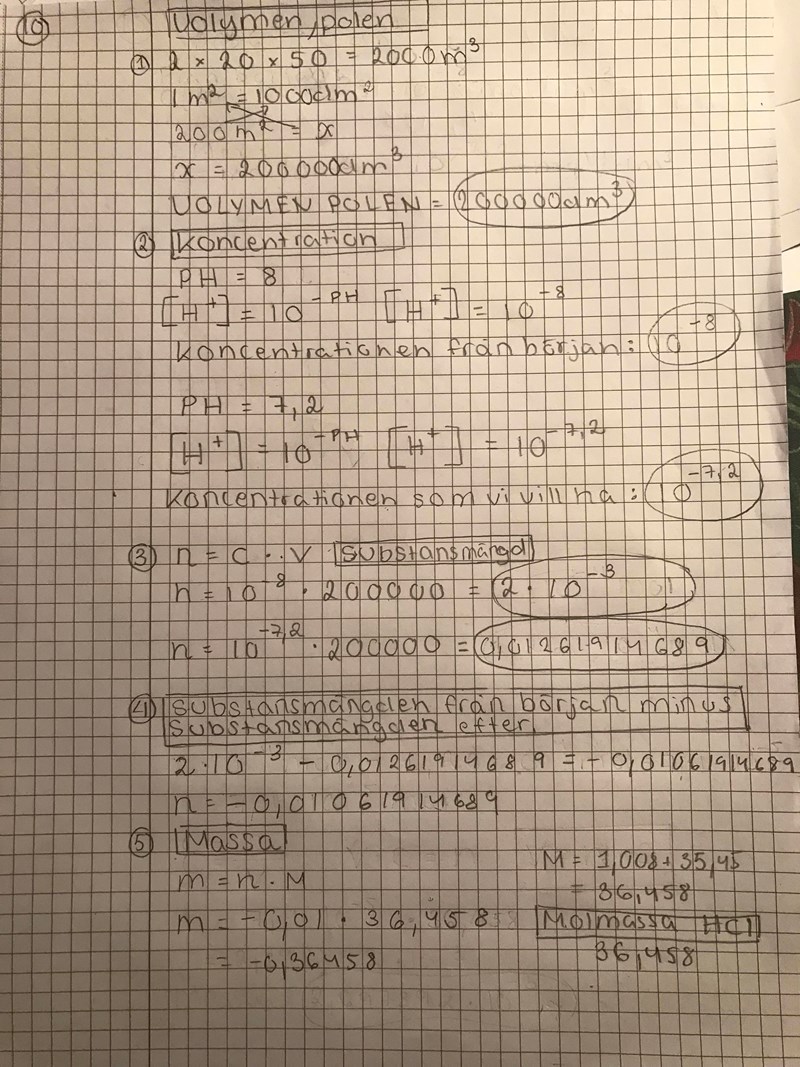 10 Volymen, polen
① 2 × 20 × 50 = 2000m³
1m² = 1000dm²
200m² = x
x = 200000dm³
VOLYMEN POLEN = 200000dm³
② Koncentration
PH = 8
[H⁺] = 10⁻ᴾᴴ [H⁺] = 10⁻⁸
Koncentrationen från början: 10⁻⁸
PH = 7,2
[H⁺] = 10⁻ᴾᴴ [H⁺] = 10⁻⁷,²
Koncentrationen som vi vill ha: 10⁻⁷,²
③ n = c · V Substansmängd
n = 10⁻⁸ · 200000 = 2 · 10⁻³
n = 10⁻⁷,² · 200000 = 0,01261914689
④ Substansmängden från början minus
substansmängden efter
2·10⁻³ - 0,01261914689 = -0,01061914689
n = -0,01061914689
⑤ Massa
m = n · M
m = -0,01 · 36,458
= -0,36458
M = 1,008 + 35,45
= 36,458
Molmassa HCl
36,458